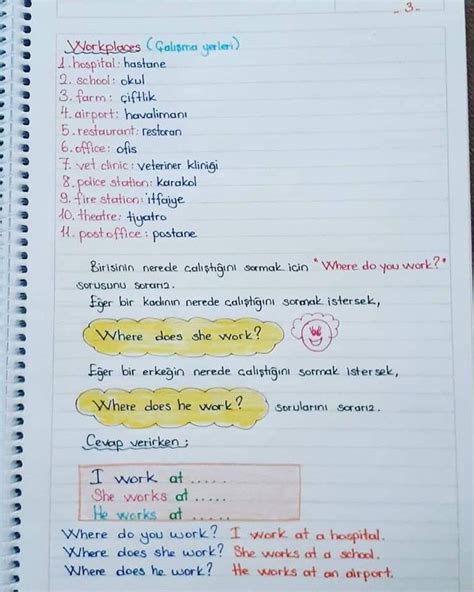 - 3 -
Workplaces (Çalışma yerleri)
1. hospital: hastane
2. school: okul
3. farm: çiftlik
4. airport: havalimanı
5. restaurant: restoran
6. office: ofis
7. vet clinic: veteriner kliniği
8. police station: karakol
9. fire station: itfaiye
10. theatre: tiyatro
11. post office: postane
Birisinin nerede çalıştığını sormak için "Where do you work?"
sorusunu sorarız.
Eğer bir kadının nerede çalıştığını sormak istersek,
Where does she work?
Eğer bir erkeğin nerede çalıştığını sormak istersek,
Where does he work? sorularını sorarız.
Cevap verirken;
I work at .....
She works at .....
He works at .....
Where do you work? I work at a hospital.
Where does she work? She works at a school.
Where does he work? He works at an airport.